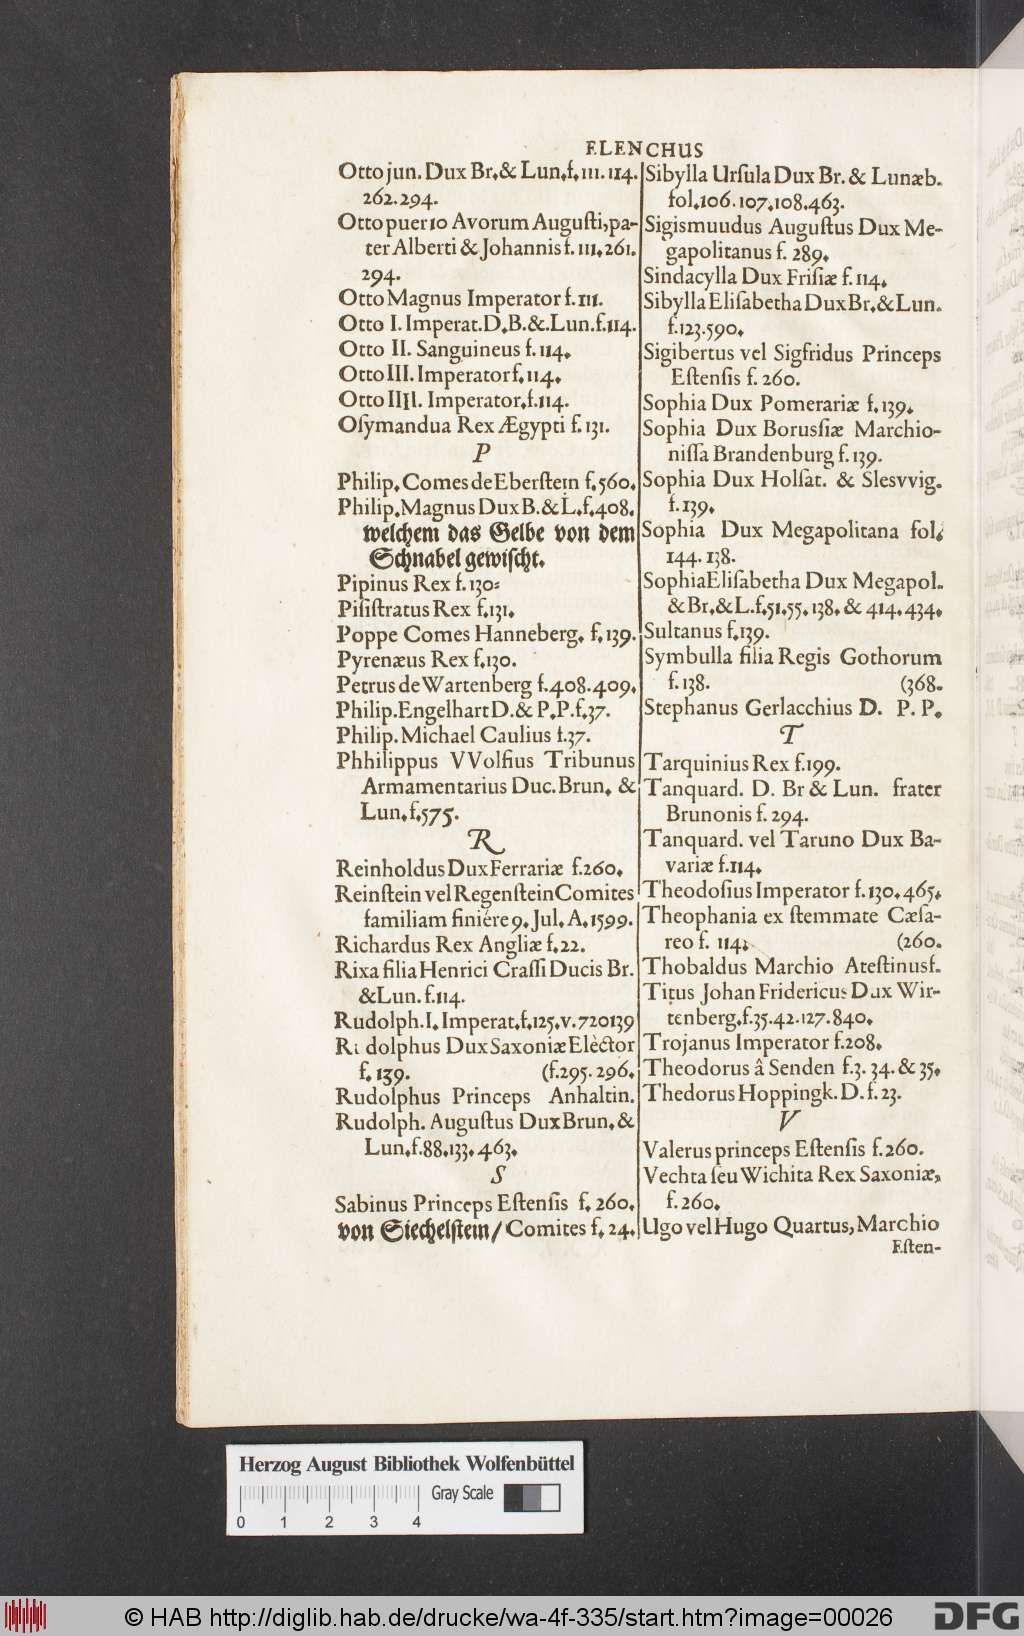 ELENCHUS
Otto jun. Dux Br. & Lun. f. 111. 114.
262. 294.
Otto puer 10 Avorum Augusti, pa-
ter Alberti & Johannis f. 111. 261.
294.
Otto Magnus Imperator f. 111.
Otto I. Imperat. D. B. &. Lun. f. 114.
Otto II. Sanguineus f. 114.
Otto III. Imperator f. 114.
Otto IIII. Imperator. f. 114.
Osymandua Rex Ægypti f. 131.
P
Philip. Comes de Eberstein f. 560.
Philip. Magnus Dux B. & L. f. 408.
welchem das Gelbe von dem
Schnabel gewischt.
Pipinus Rex f. 130:
Pisistratus Rex f. 131.
Poppe Comes Hanneberg. f. 139.
Pyrenæus Rex f. 130.
Petrus de Wartenberg f. 408. 409.
Philip. Engelhart D. & P. P. f. 37.
Philip. Michael Caulius f. 37.
Phhilippus VVolfius Tribunus
Armamentarius Duc. Brun. &
Lun. f. 575.
R
Reinholdus Dux Ferrariæ f. 260.
Reinstein vel Regenstein Comites
familiam finiére 9. Jul. A. 1599.
Richardus Rex Angliæ f. 22.
Rixa filia Henrici Crassi Ducis Br.
& Lun. f. 114.
Rudolph. I. Imperat. f. 125. v. 720139
Rudolphus Dux Saxoniæ Elèctor
f. 139. (f. 295. 296.
Rudolphus Princeps Anhaltin.
Rudolph. Augustus Dux Brun. &
Lun. f. 88. 133. 463.
S
Sabinus Princeps Estensis f. 260.
von Siechelstein / Comites f. 24.
Sibylla Ursula Dux Br. & Lunæb.
fol. 106. 107. 108. 463.
Sigismuudus Augustus Dux Me-
gapolitanus f. 289.
Sindacylla Dux Frisiæ f. 114.
Sibylla Elisabetha Dux Br. & Lun.
f. 123. 590.
Sigibertus vel Sigfridus Princeps
Estensis f. 260.
Sophia Dux Pomerariæ f. 139.
Sophia Dux Borussiæ Marchio-
nissa Brandenburg f. 139.
Sophia Dux Holsat. & Slesvvig.
f. 139.
Sophia Dux Megapolitana fol.
144. 138.
Sophia Elisabetha Dux Megapol.
& Br. & L. f. 51. 55. 138. & 414. 434.
Sultanus f. 139.
Symbulla filia Regis Gothorum
f. 138. (368.
Stephanus Gerlacchius D. P. P.
T
Tarquinius Rex f. 199.
Tanquard. D. Br & Lun. frater
Brunonis f. 294.
Tanquard. vel Taruno Dux Ba-
variæ f. 114.
Theodosius Imperator f. 130. 465.
Theophania ex stemmate Cæsa-
reo f. 114. (260.
Thobaldus Marchio Atestinus f.
Titus Johan Fridericus Dux Wir-
tenberg. f. 35. 42. 127. 840.
Trojanus Imperator f. 208.
Theodorus â Senden f. 3. 34. & 35.
Thedorus Hoppingk. D. f. 23.
V
Valerus princeps Estensis f. 260.
Vechta seu Wichita Rex Saxoniæ,
f. 260.
Ugo vel Hugo Quartus, Marchio
Esten-
Herzog August Bibliothek Wolfenbüttel
Gray Scale
0 1 2 3 4
© HAB http://diglib.hab.de/drucke/wa-4f-335/start.htm?image=00026
DFG